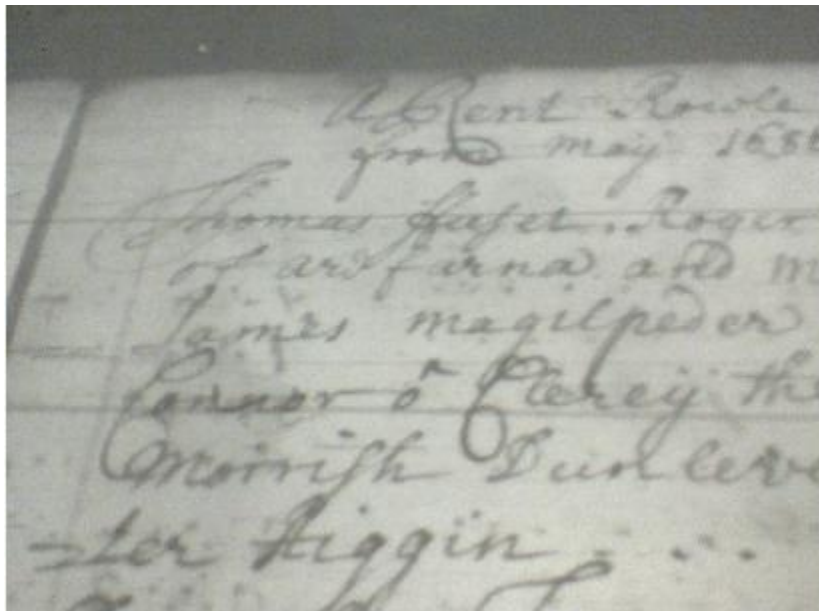 A Rent Rowle
from may 168
Thomas ffuset. Roger
of ardfarna and m
James magilpeder
Connor o Clerey the
Morrish Dunleve
ter Higgin . . .